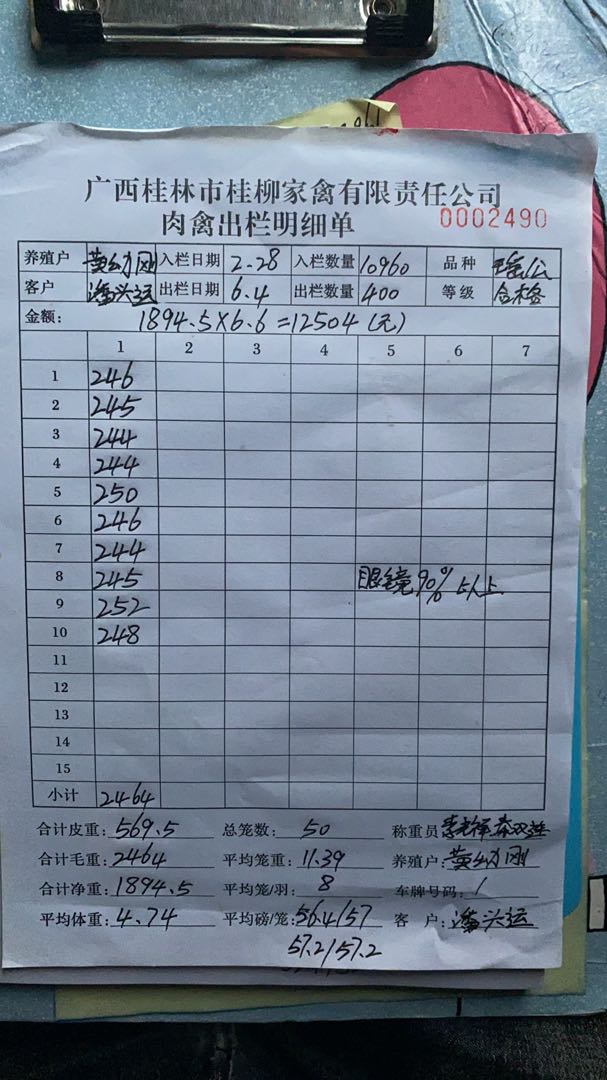 广西桂林市桂柳家禽有限责任公司
肉禽出栏明细单 0002490
养殖户 黄幼刚 入栏日期 2-28 入栏数量 10960 品种 瑶公
客户 潘头运 出栏日期 6.4 出栏数量 400 等级 合格
金额: 1894.5×6.6=12504(元)
1 2 3 4 5 6 7
1 246
2 245
3 244
4 244
5 250
6 246
7 244
8 245 眼镜90%以上
9 252
10 248
11
12
13
14
15
小计 2464
合计皮重: 569.5 总笼数: 50 称重员
合计毛重: 2464 平均笼重: 11.39 养殖户: 黄幼刚
合计净重: 1894.5 平均笼/羽: 8 车牌号码: /
平均体重: 4.74 平均磅/笼: 56.4/57 客户: 潘头运
57.2/57.2